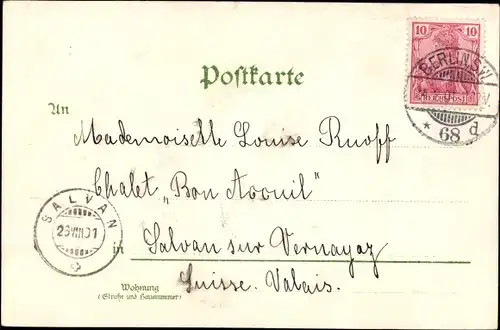 10
REICHSPOST
BERLIN.S.W.
* 68 d
Postkarte
An
Mademoiselle Louise Ruoff
Chalet „Bon Accueil"
SALVAN
26 VIII 01
in Salvan sur Vernayaz
Suisse. Valais.
Wohnung
(Straße und Hausnummer)